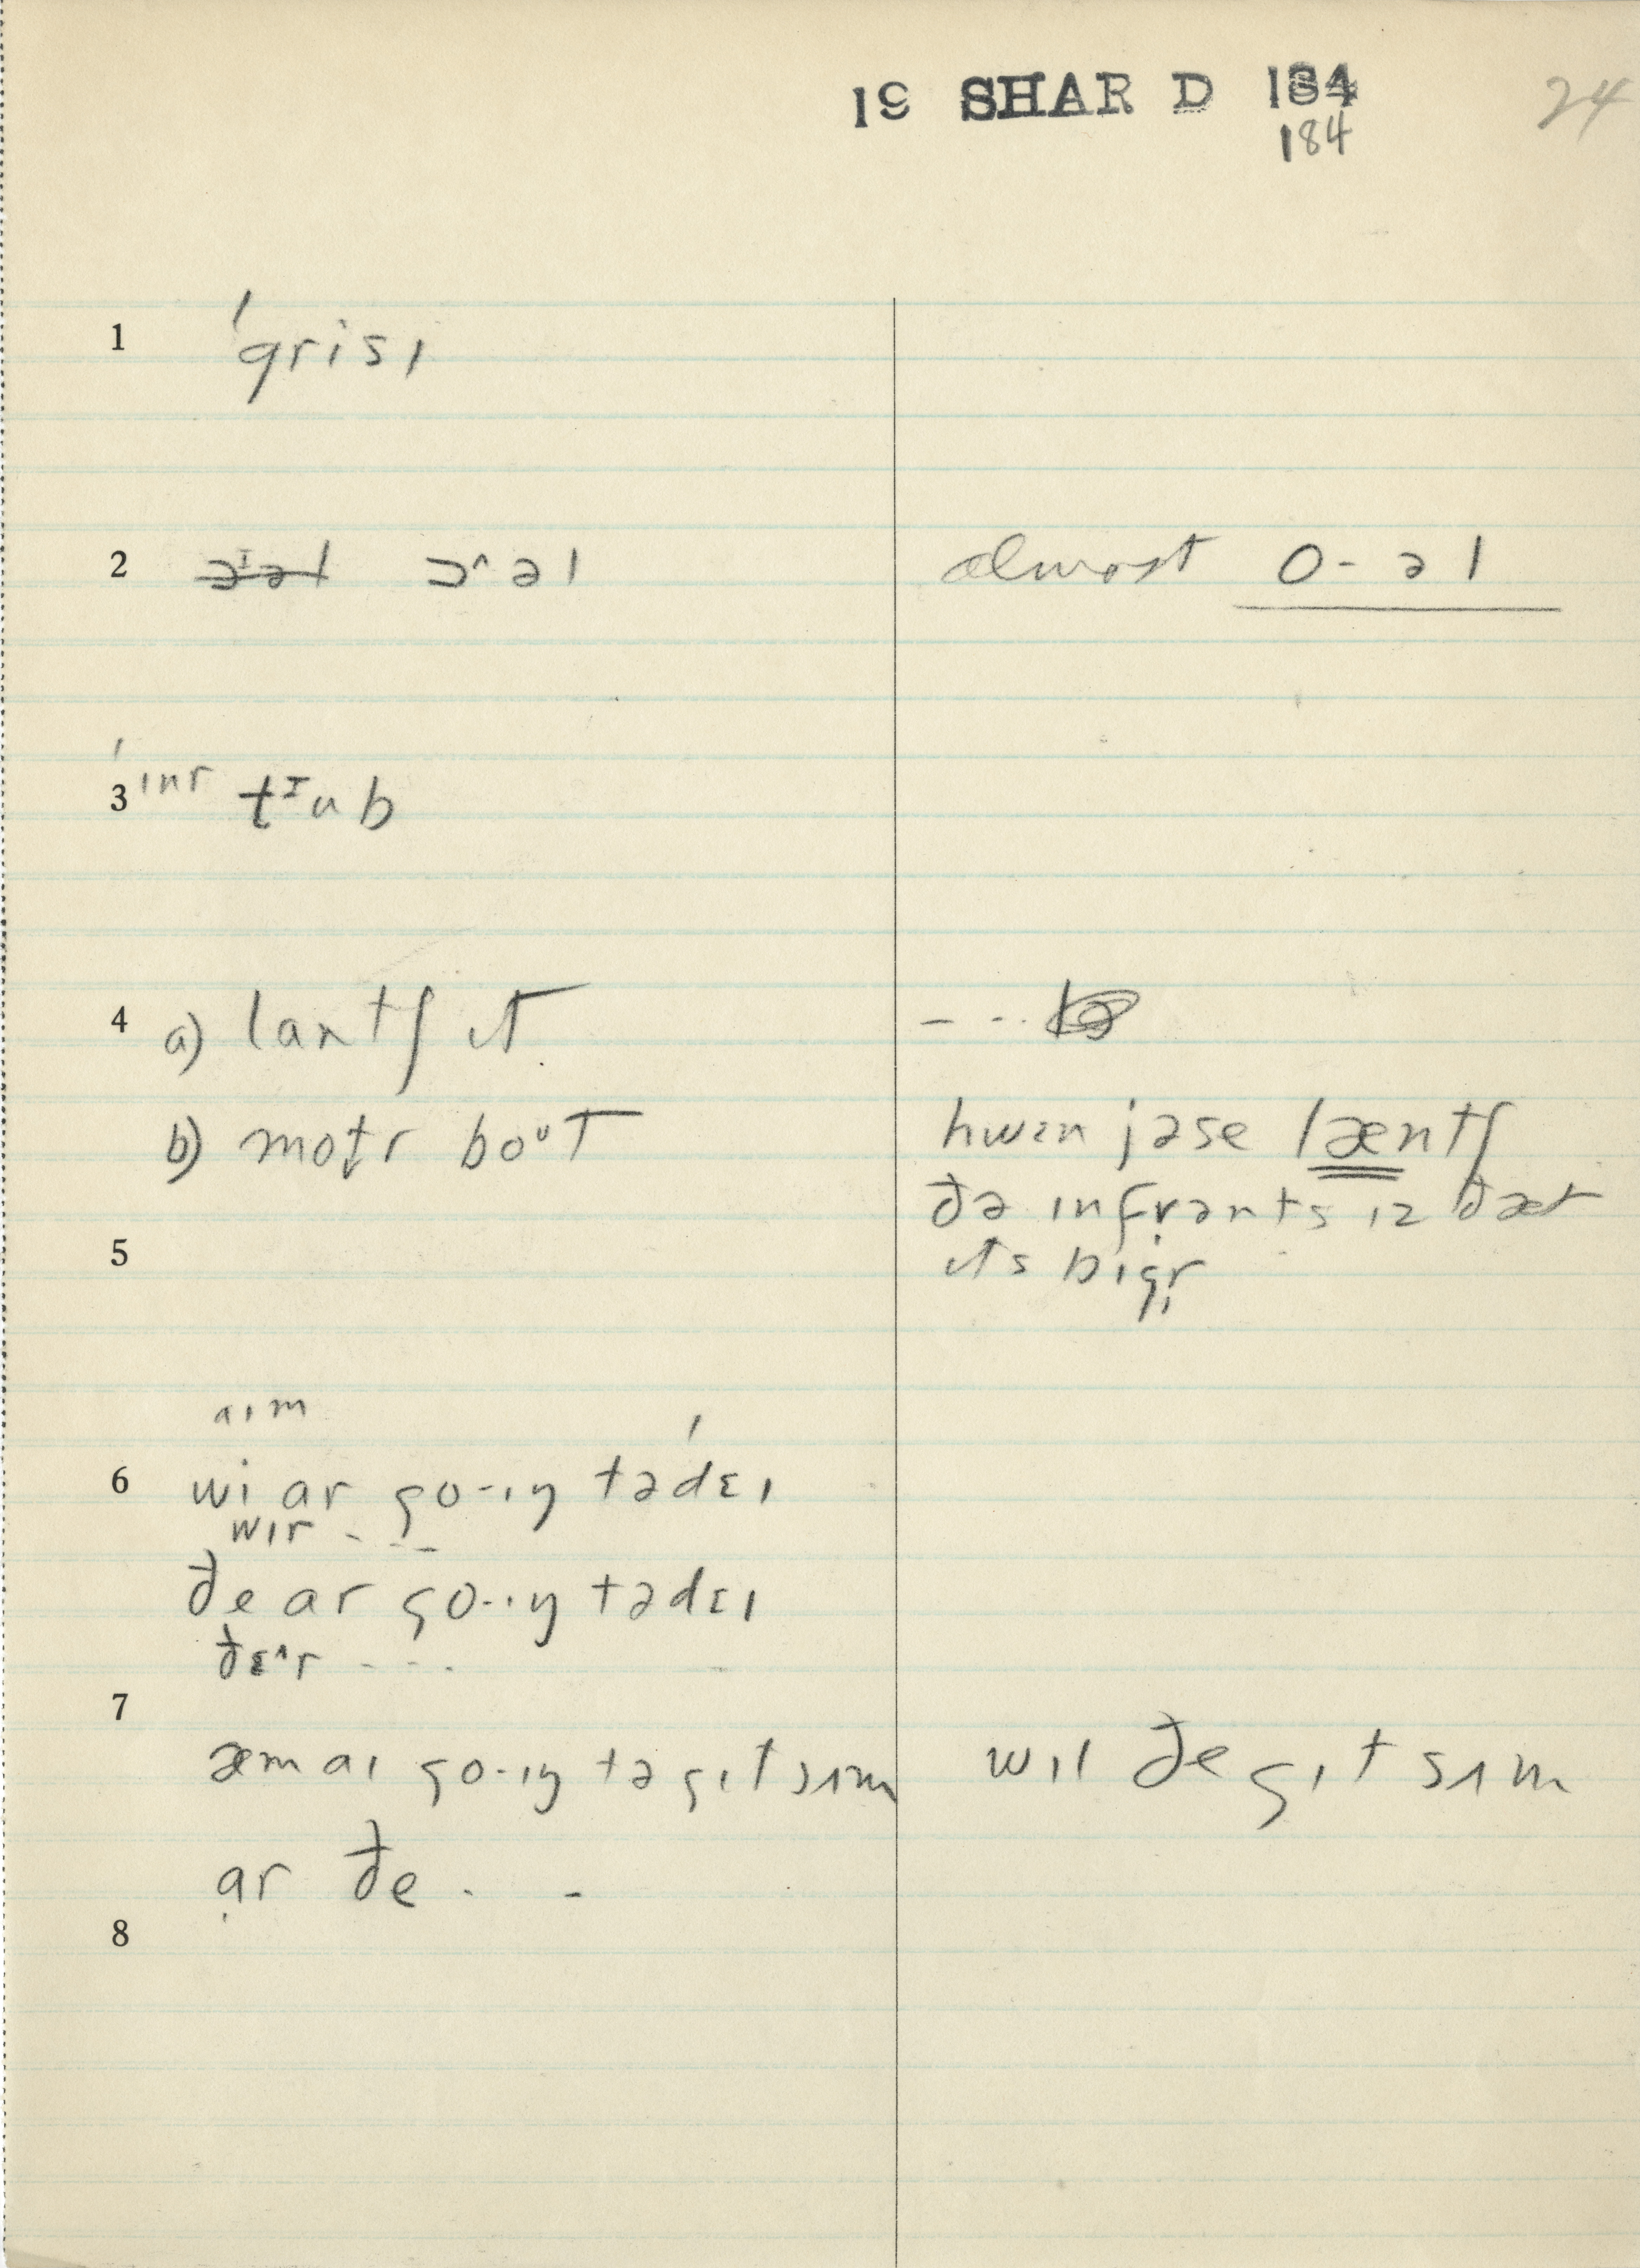 19 SHAR D 184
184
24
1 ˈgrisɪ
2 ɔɪəl ɔ^əl almost o-əl
3 ˈɪnr tᴵub
4 a) lantʃ ɪt - - · ·
b) motr boᵘt
hwɛn jəse læntʃ
ðə infrənts ɪz ðæt
ɪts bɪgr
5
aɪm
6 wi ar go-ɪŋ tədɛɪ
wɪr - - -
ðe ar go-ɪŋ tədɛɪ
ðɛ^r - - -
7
æm aɪ go-ɪŋ tə gɪt sʌm wɪl ðe gɪt sʌm
ar ðe - -
8